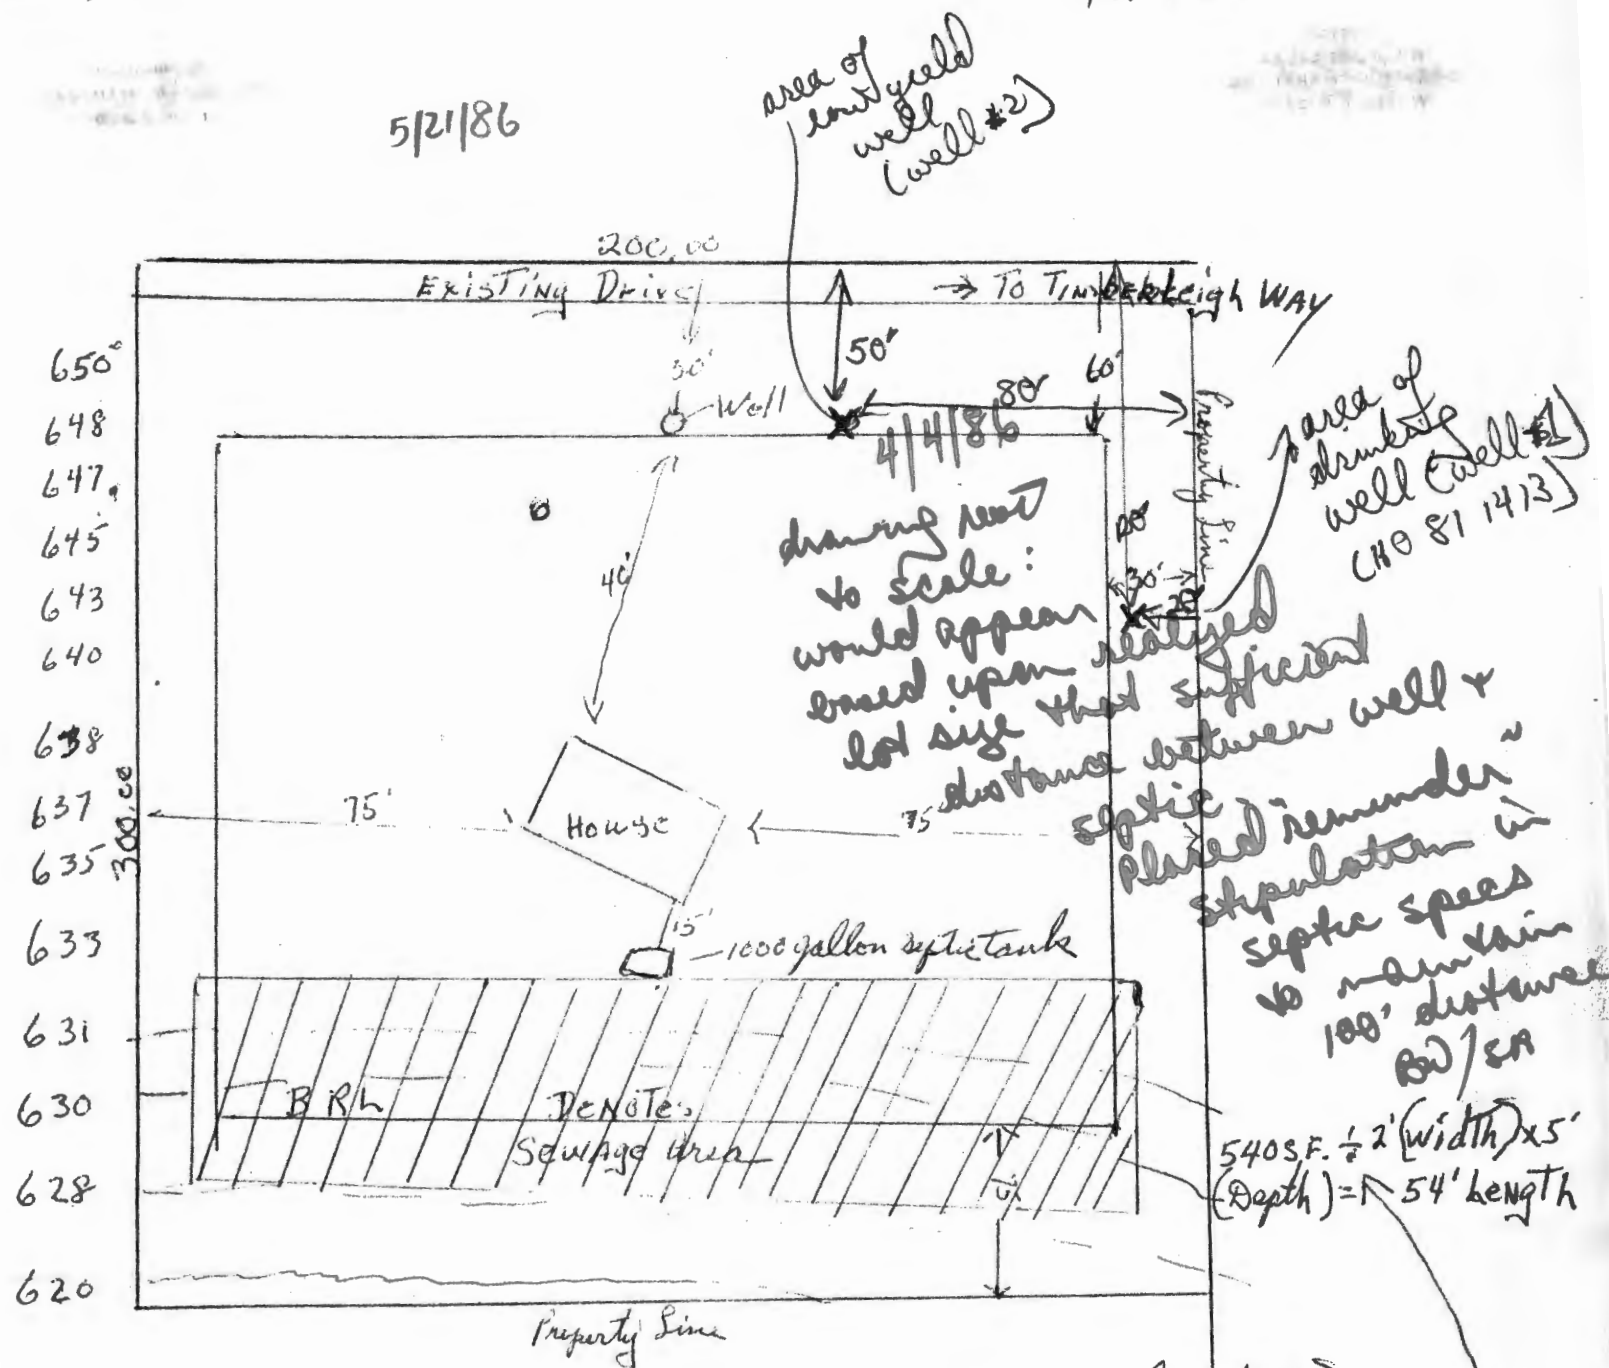 5/21/86
area of
low yield
well
(well #2)
200.00
Existing Drive
→ To Timberleigh Way
650
648
647
645
643
640
638
637
635
633
631
630
628
620
300.00
30'
Well
50'
80'
60'
4/4/86
Property Line
area of
drinking
well (well #1)
(HO 81 1413)
120'
30'
20'
40'
drawing not
to scale:
would appear
based upon realized
lot size that sufficient
distance between well +
septic.
Placed "reminder"
stipulation in
septic specs
to maintain
100' distance
BW/SA
75'
House
75
15'
1000 gallon septic tank
BRL
Denotes
Sewage Area
540 S.F. ÷ 2' (Width) x 5'
(Depth) = 54' Length
Property Line